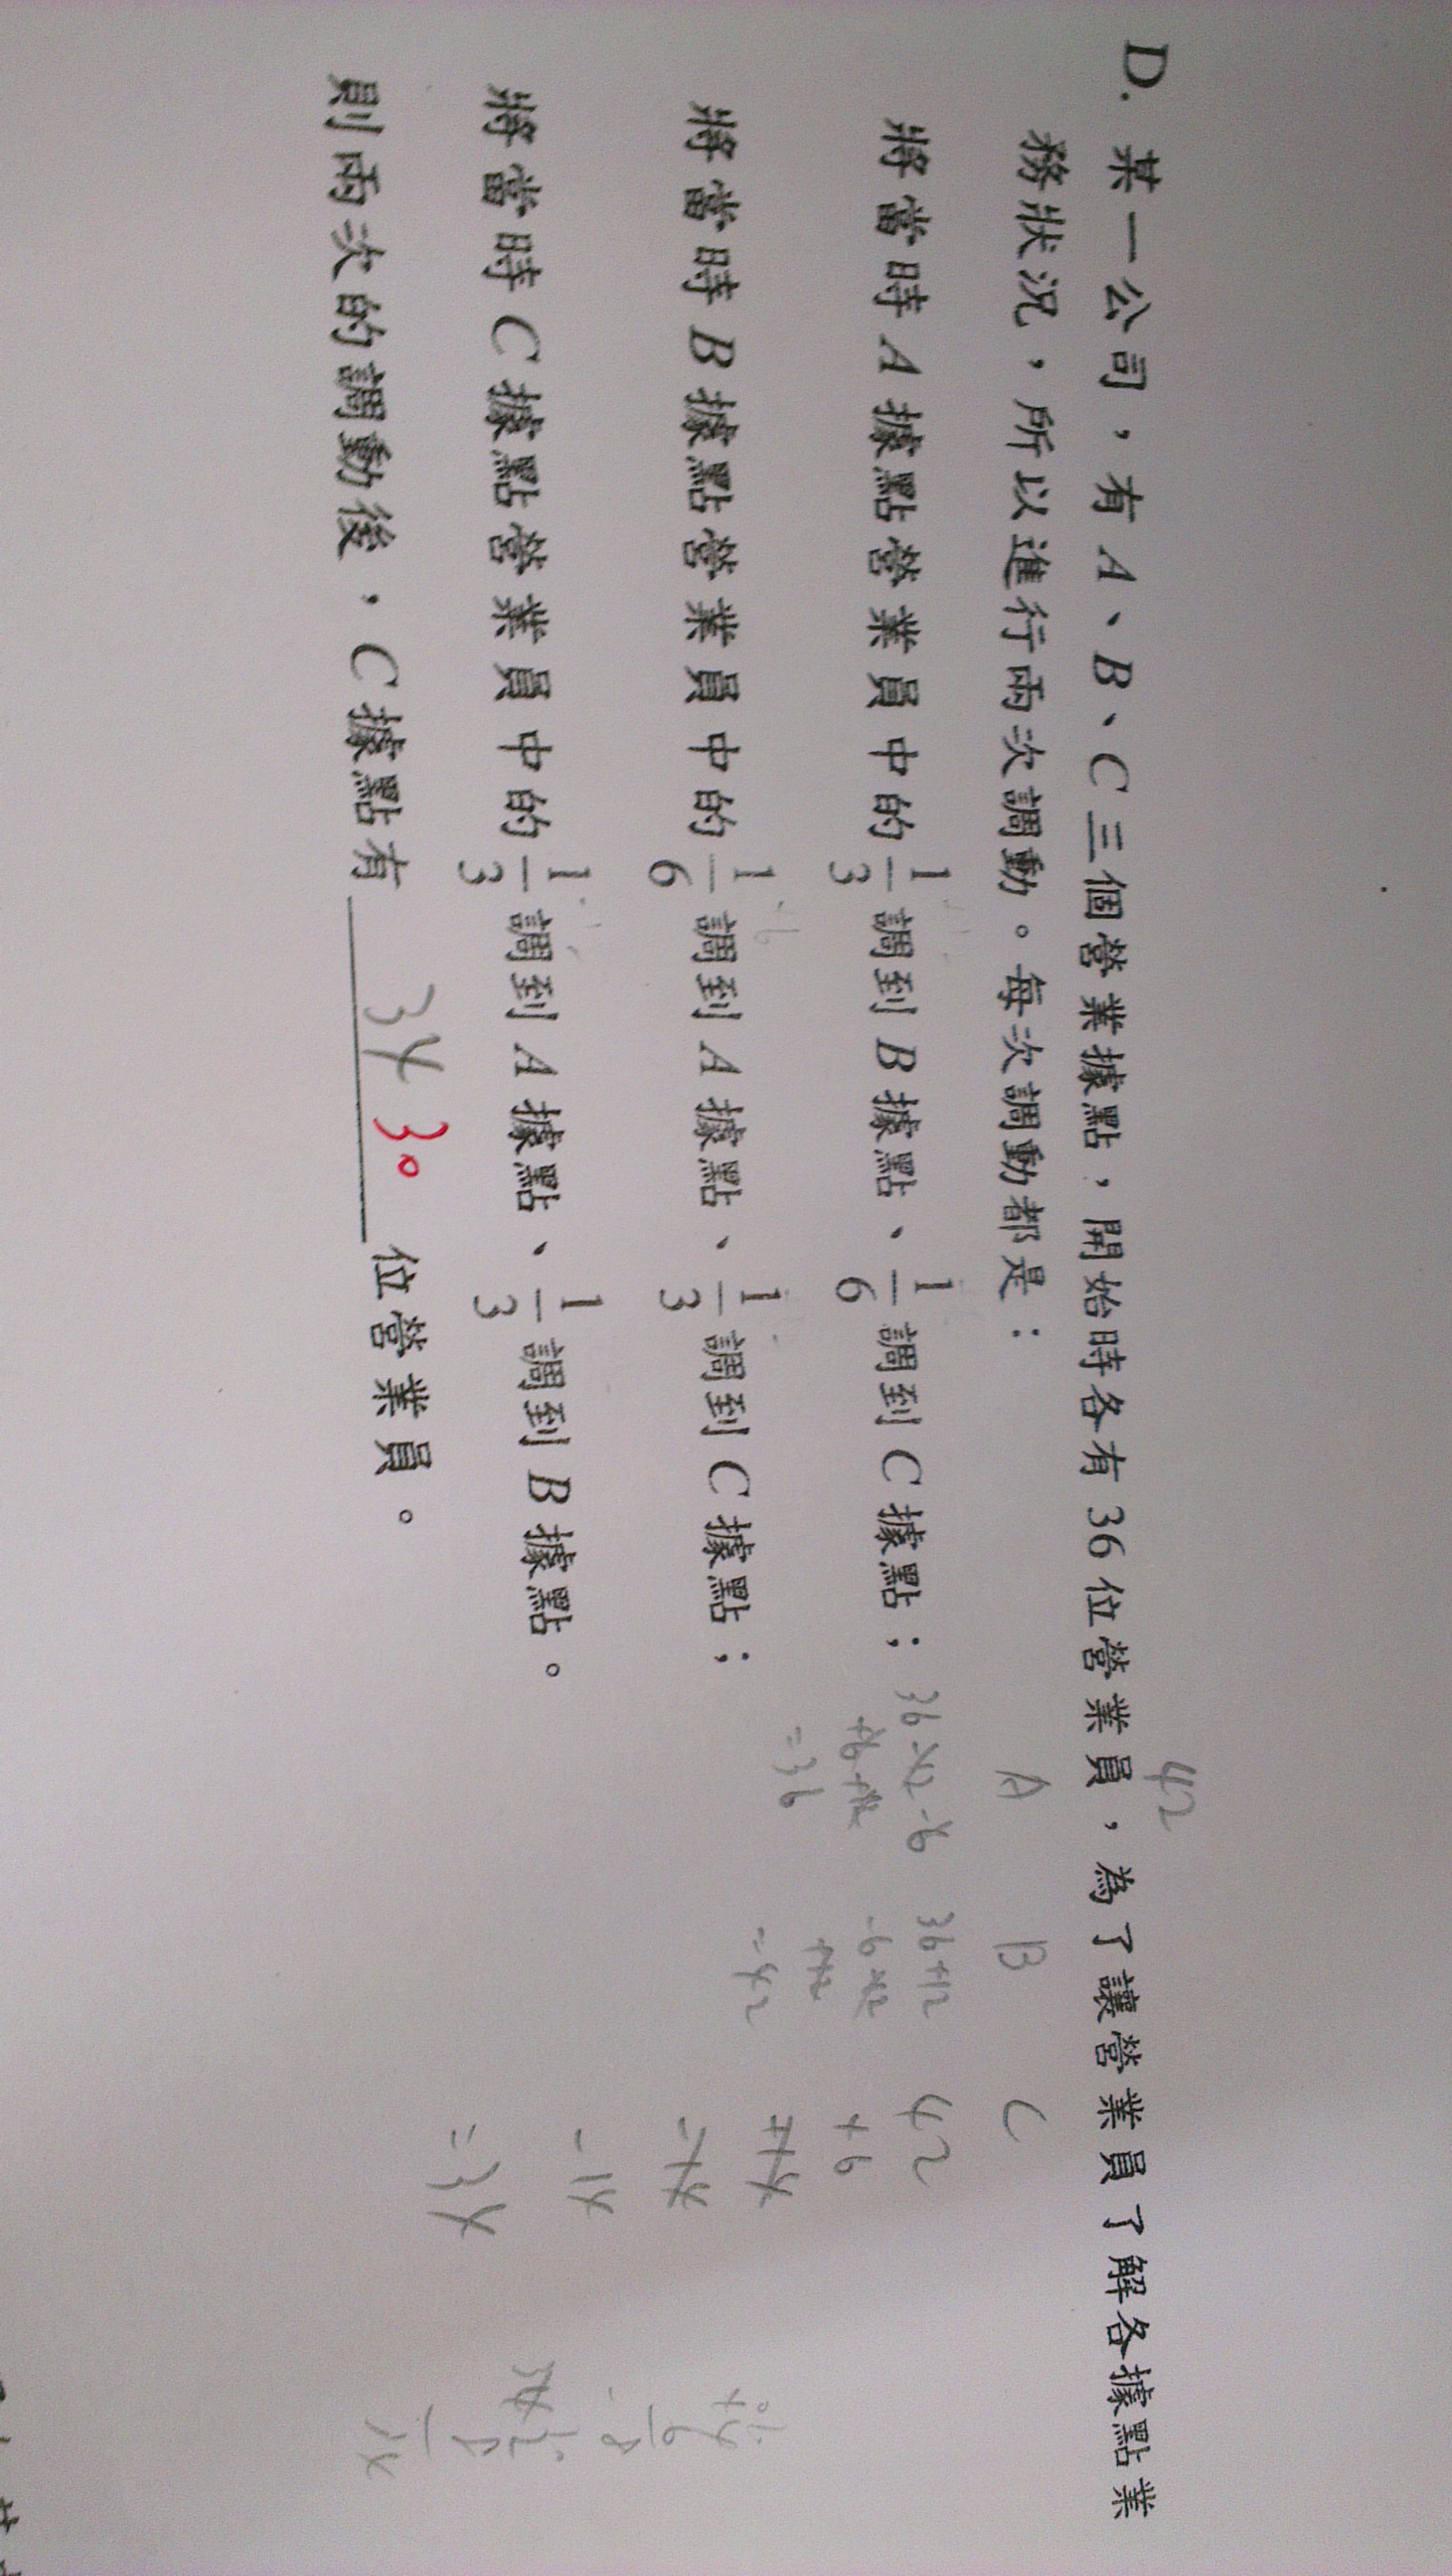 D. 某一公司，有 A、B、C 三個營業據點，開始時各有 36 位營業員，為了讓營業員了解各據點業
務狀況，所以進行兩次調動。每次調動都是：
將當時 A 據點營業員中的 1/3 調到 B 據點、1/6 調到 C 據點；
將當時 B 據點營業員中的 1/6 調到 A 據點、1/3 調到 C 據點；
將當時 C 據點營業員中的 1/3 調到 A 據點、1/3 調到 B 據點。
則兩次的調動後，C 據點有 34 30 位營業員。
42
A B C
36-12-6
+6+12
=36
36+12
-6-12
+12
=42
42
+6
-14
=34